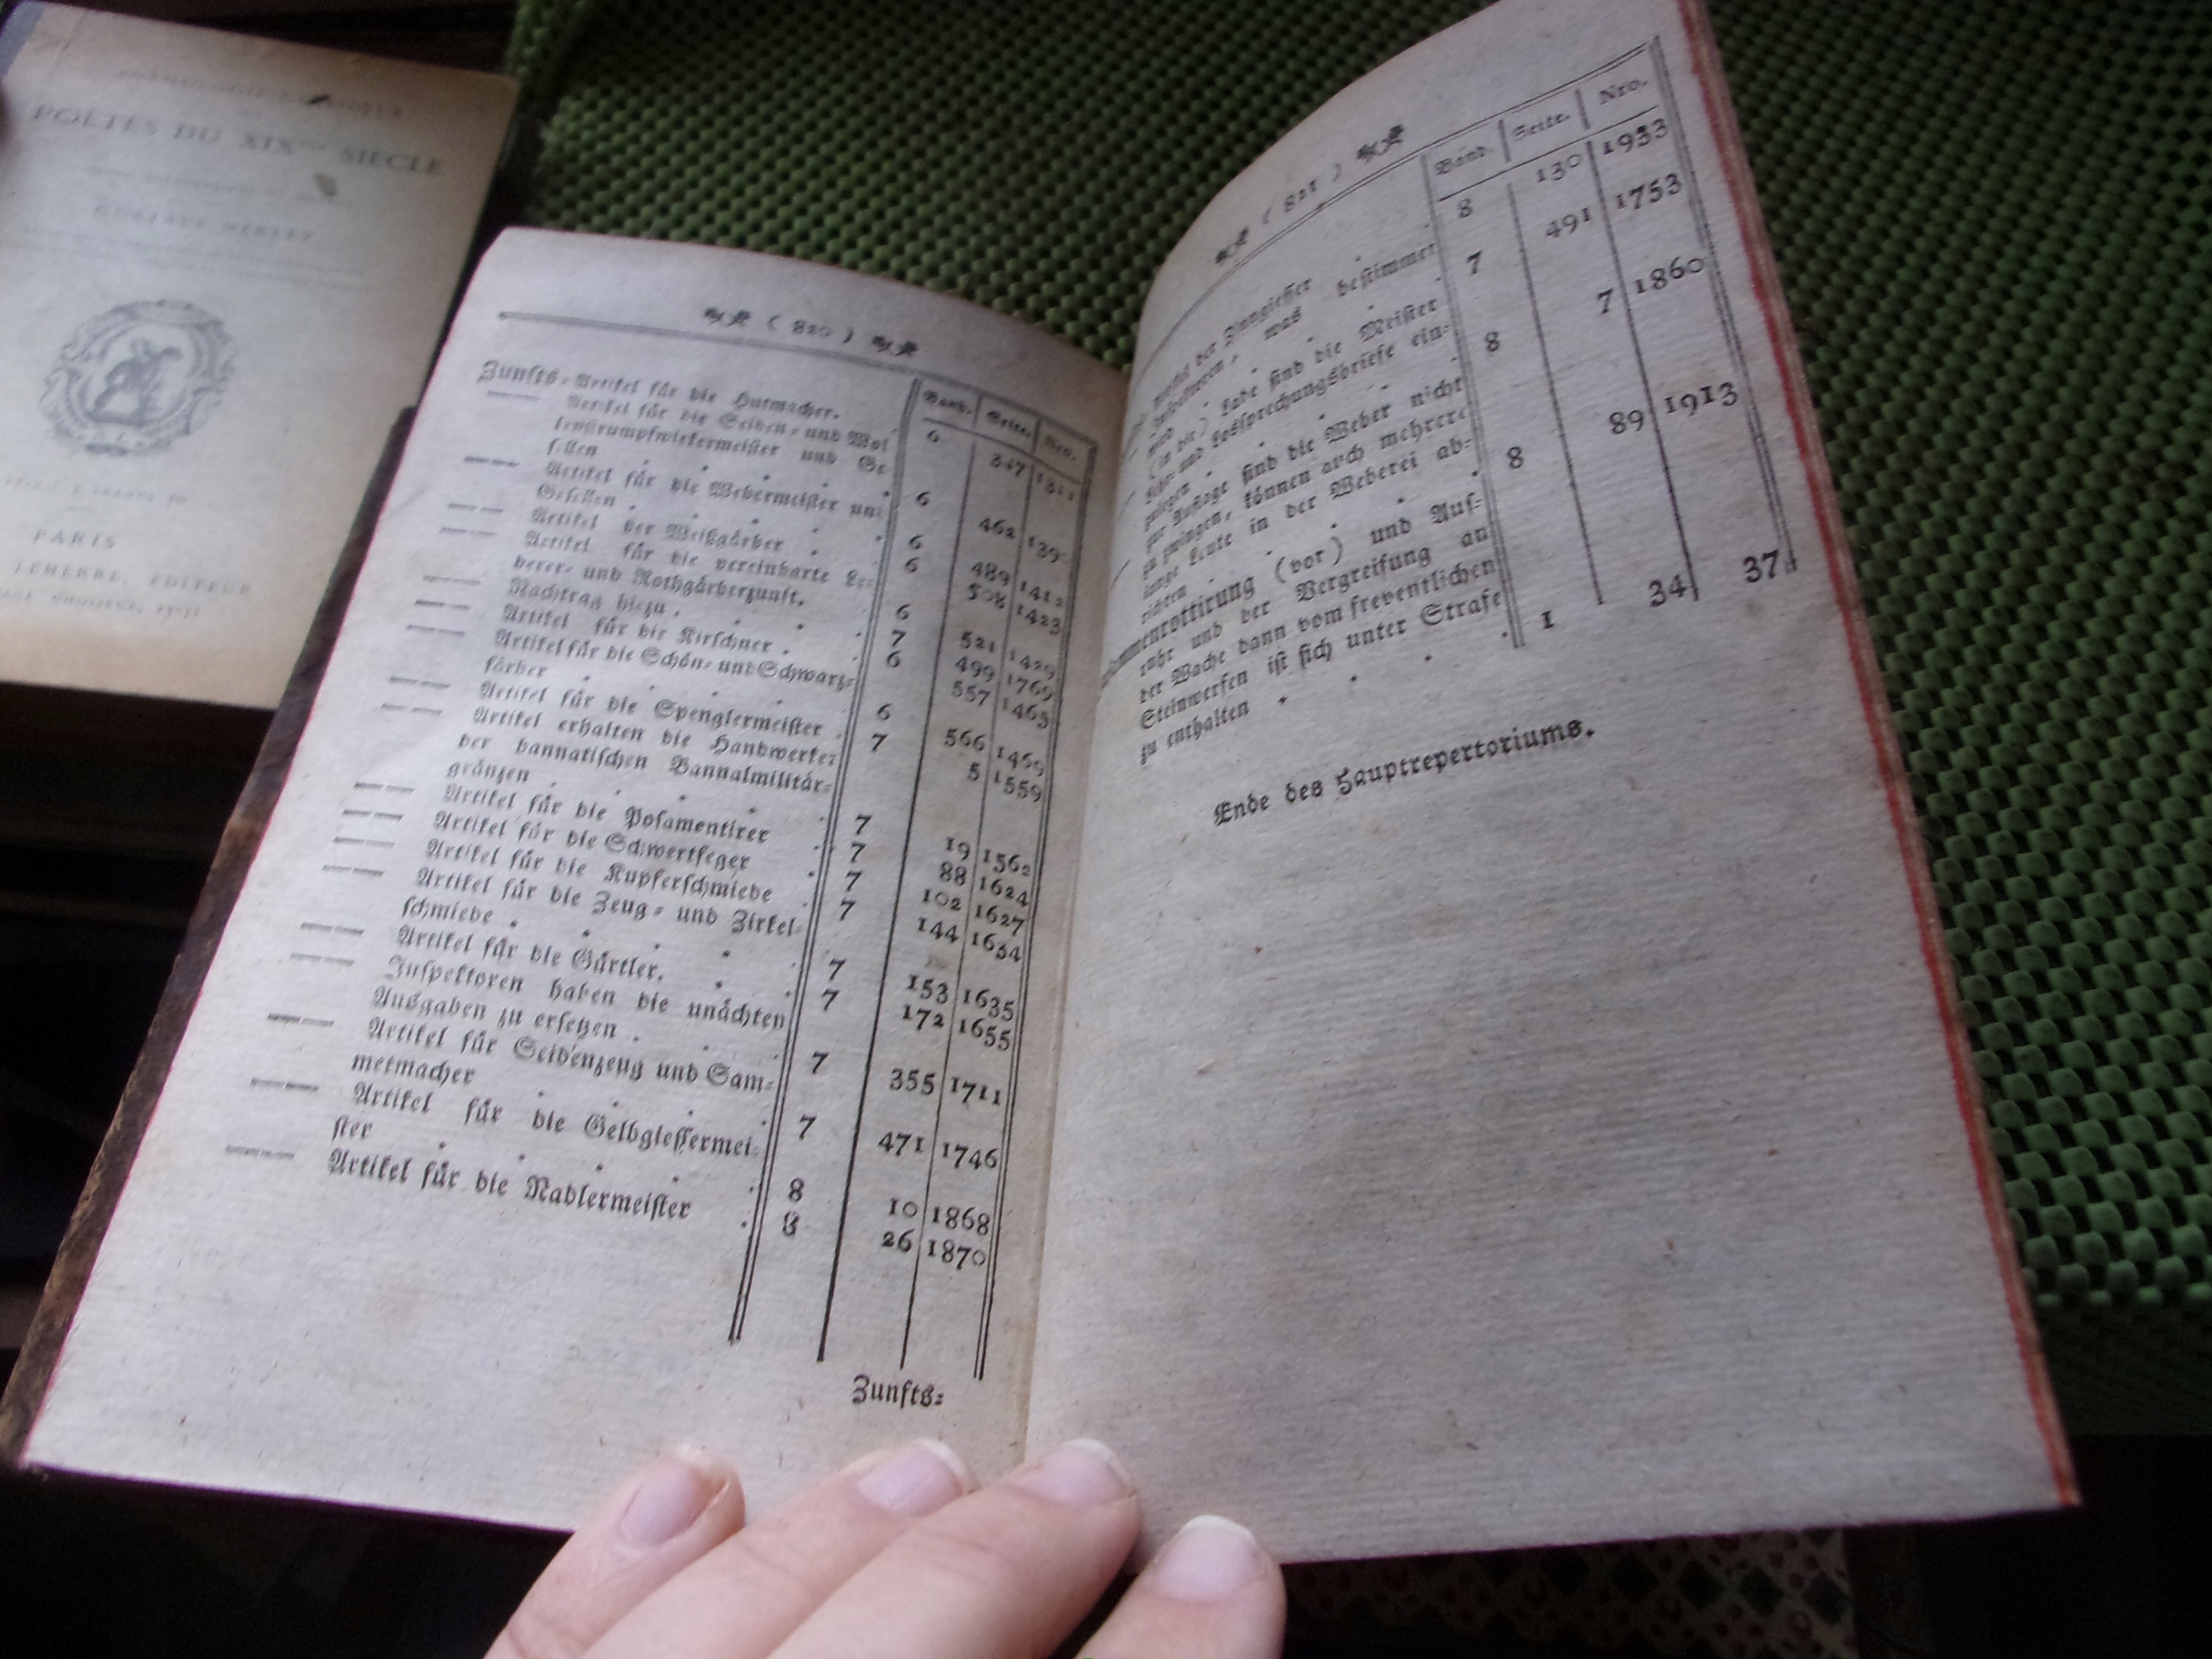 POÈTES DU XIXme SIÈCLE
GUSTAVE MERLET
PARIS
LEMERRE, ÉDITEUR
( 820 )
Band. Seite. Nro.
Zunfts-Artikel für die Hutmacher. 6 347
— Artikel für die Seiden- und Wol
lenstrumpfwirkermeister und Ge
sellen 6 462
— Artikel für die Webermeister und
Gesellen 6 489 1412
— Artikel der Weißgärber 6 508 1423
— Artikel für die vereinbarte Le-
derer- und Rothgärberzunft. 6 521 1429
— Nachtrag hiezu 7 499 1769
— Artikel für die Kirschner 6 557 1463
— Artikel für die Schön- und Schwarz-
färber 6 566 1469
— Artikel für die Spenglermeister 7 5 1559
— Artikel erhalten die Handwerker
der bannatischen Bannalmilitär-
gränzen 7 19 1562
— Artikel für die Posamentirer 7 88 1624
— Artikel für die Schwertfeger 7 102 1627
— Artikel für die Kupferschmiede 7 144 1634
— Artikel für die Zeug- und Zirkel-
schmiede 7 153 1635
— Artikel für die Gürtler. 7 172 1655
— Inspektoren haben die unächten
Ausgaben zu ersetzen 7 355 1711
— Artikel für Seidenzeug und Sam-
metmacher 7 471 1746
— Artikel für die Gelbgiessermei-
ster 8 10 1868
— Artikel für die Nadlermeister 8 26 1870
Zunfts-
( 821 )
Band. Seite. Nro.
der Zinngiesser 8 130 1933
was bestimmet
7 491 1753
(in die) Lade sind die Meister
und Lossprechungsbriefe ein-
zulegen 8 7 1860
zur Auflage sind die Weber nicht
zu zwingen, können auch mehrere
junge Leute in der Weberei ab-
richten 8 89 1913
(vor) und Auf-
ruhr und der Vergreifung an
der Wache dann vom freventlichen
Steinwerfen ist sich unter Strafe
zu enthalten 1 34 37
Ende des Hauptrepertoriums.